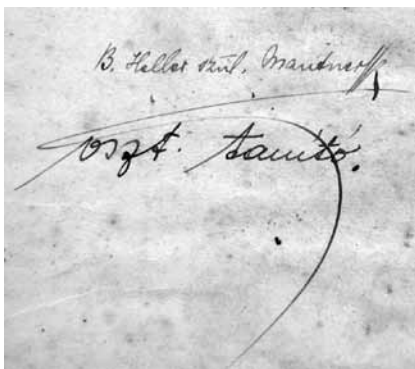 B. Heller szül. Mautner
oszt. tanító.